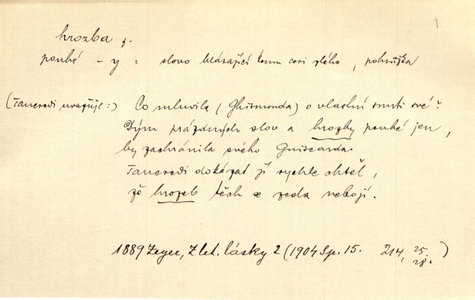 hrozba f.
pouhé – y : slovo hlásající komu cosi zlého, pohrůžka
(Tancredi uvažuje:) Co mluvila (Ghismonda) o vlastní smrti své?
Dým prázdných slov a hrozby pouhé jen,
by zachránila svého Guiscarda.
Tancredi dokázat jí rychle chtěl,
že hrozeb těch se zcela nebojí.
1889 Zeyer, Z let. lásky 2 (1904 Sp. 15. 214, 25. 28.)